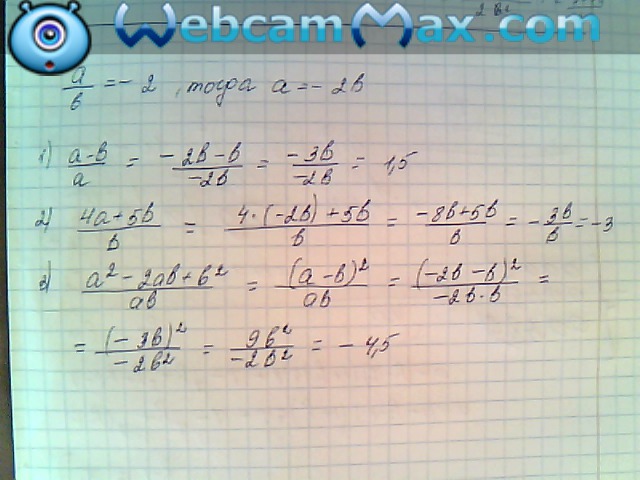 WebcamMax.com
a/b = -2, тогда a = -2b
1) (a-b)/a = (-2b-b)/(-2b) = (-3b)/(-2b) = 1,5
2) (4a+5b)/b = (4·(-2b)+5b)/b = (-8b+5b)/b = -3b/b = -3
3) (a²-2ab+b²)/(ab) = (a-b)²/(ab) = (-2b-b)²/(-2b·b) =
= (-3b)²/(-2b²) = 9b²/(-2b²) = -4,5